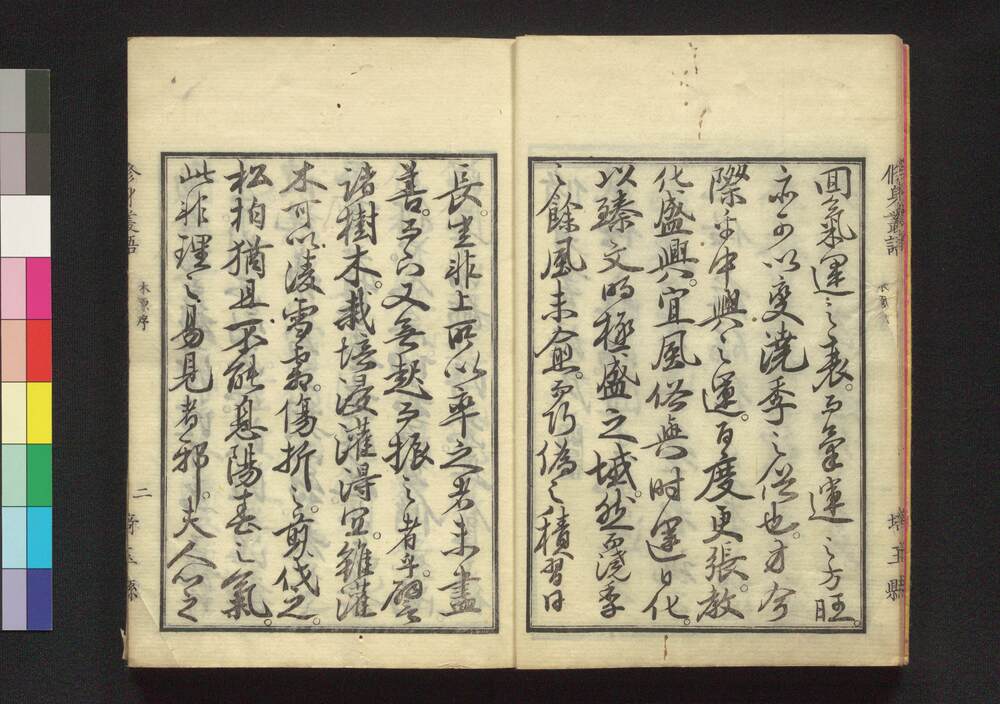 回氣運之衰。而氣運之方旺。
亦可以變澆季之俗也。方今
際乎中興之運。百度更張。教
化盛興。宜風俗與時運日化。
以臻文明極盛之域。然而澆季
之餘風未愈。而巧偽之積習日
長。豈非上所以率之者未盡
善。而下又無起而振之者乎。譬
諸樹木。栽培浸灌得宜。雖灌
木可以凌雪霜。傷折之。剪伐之。
松柏猶且不能息陽春之氣。
此非理之易見者邪。夫人心之
修身叢語
木原序
埼玉縣
修身叢語
木原序
二
埼玉縣